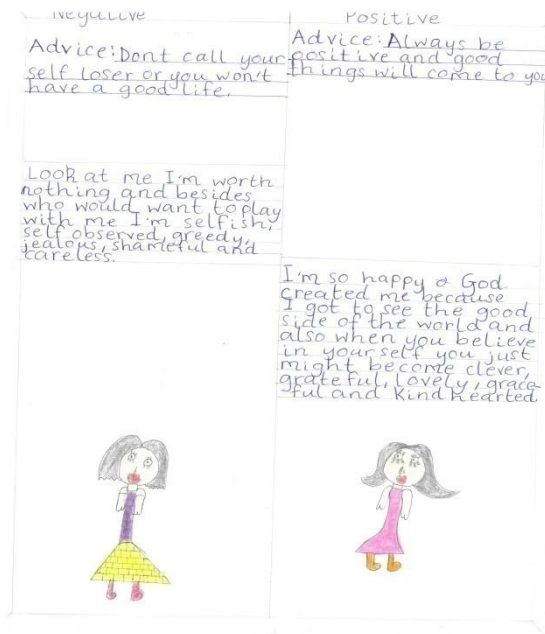 Negative
Advice: Dont call your
self loser or you won't
have a good life.
Look at me I'm worth
nothing and besides
who would want to play
with me I'm selfish,
self observed, greedy,
jealous, shameful and
careless.
Positive
Advice: Always be
positive and good
things will come to you
I'm so happy God
created me because
I got to see the good
side of the world and
also when you believe
in yourself you just
might become clever,
grateful, lovely, grace
ful and kind hearted